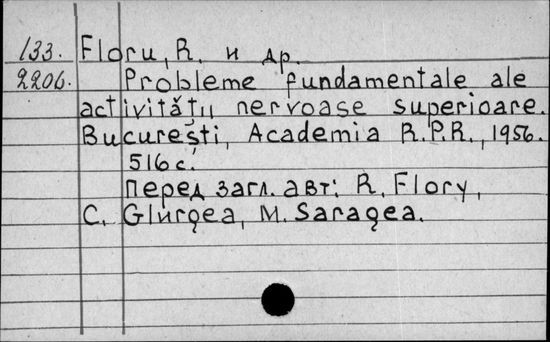 133. Floru, R. и др.
2206. Probleme fundamentale ale
activității nervoase superioare.
București, Academia R.P.R., 1956.
516 с.
Перед загл. авт: R. Flory,
C. Giurgea, M. Saragea.